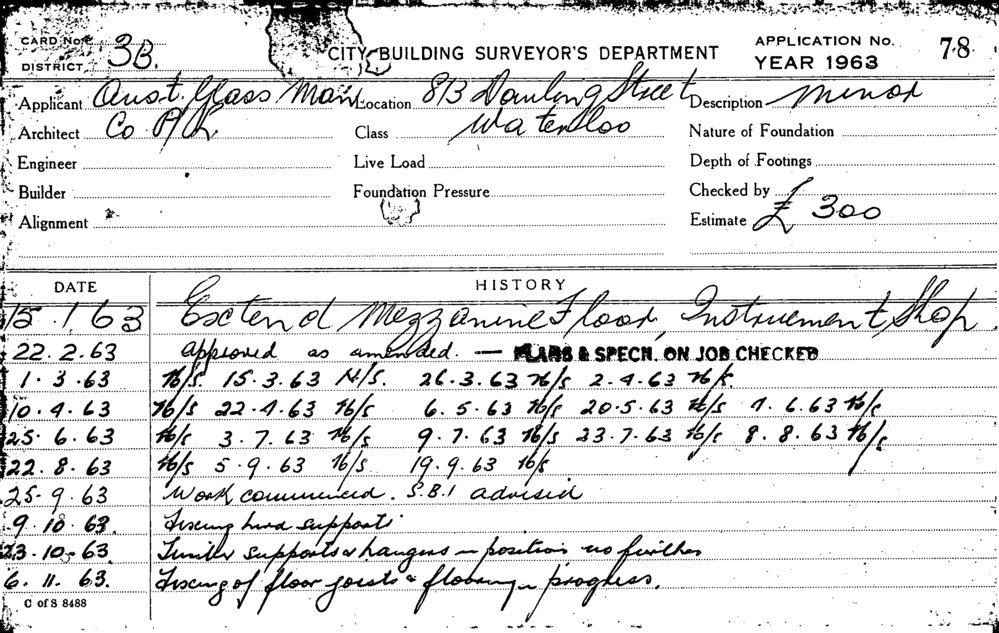 CARD No.
DISTRICT 3B.
CITY BUILDING SURVEYOR'S DEPARTMENT
APPLICATION No. 78
YEAR 1963
Applicant Aust. Glass Man Location 813 Dowling Street Description Minor
Architect Co P/L Class Waterloo Nature of Foundation
Engineer Live Load Depth of Footings
Builder Foundation Pressure Checked by
Alignment Estimate £ 300
DATE HISTORY
15.1.63 Extend Mezzanine Floor, Instrument Shop.
22.2.63 Approved as amended. — PLANS & SPECN. ON JOB CHECKED
1.3.63 N/S. 15.3.63 N/S. 26.3.63 N/S 2.4.63 N/S.
10.4.63 N/S 22.4.63 N/S 6.5.63 N/S 20.5.63 N/S 4.6.63 N/S
25.6.63 N/S 3.7.63 N/S 9.7.63 N/S 23.7.63 N/S 8.8.63 N/S
22.8.63 N/S 5.9.63 N/S 19.9.63 N/S
25.9.63 Work commenced. S.B.I advised
9.10.63. Fixing supports
23.10.63 Timber supports & hangers in position no further
6.11.63. Fixing of floor joists & flooring in progress.
C of S 8488